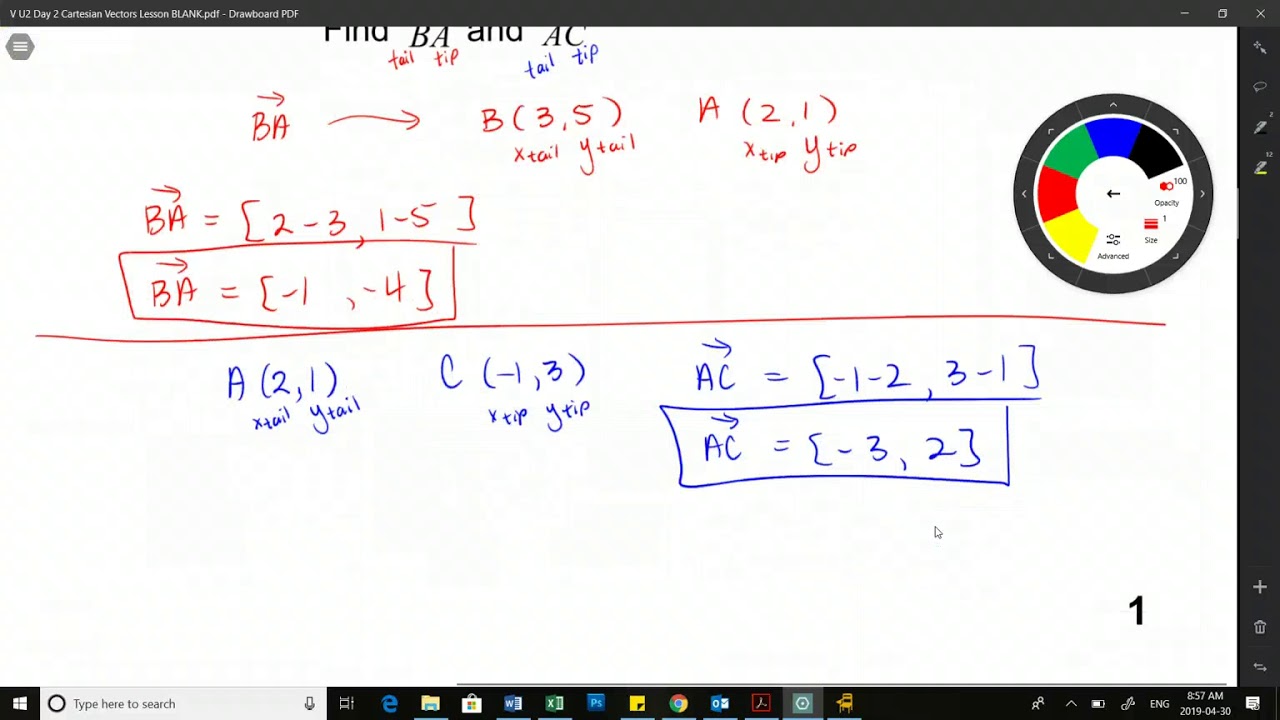 V U2 Day 2 Cartesian Vectors Lesson BLANK.pdf - Drawboard PDF
Find BA and AC
tail tip tail tip
BA → B(3,5) A (2,1)
xtail ytail xtip ytip
BA = [2-3, 1-5]
BA = [-1 , -4]
A (2,1) C (-1,3) AC = [-1-2, 3-1]
xtail ytail xtip ytip
AC = [-3, 2]
100
Opacity
1
Size
Advanced
2
12
1
Type here to search
ENG
8:57 AM
2019-04-30